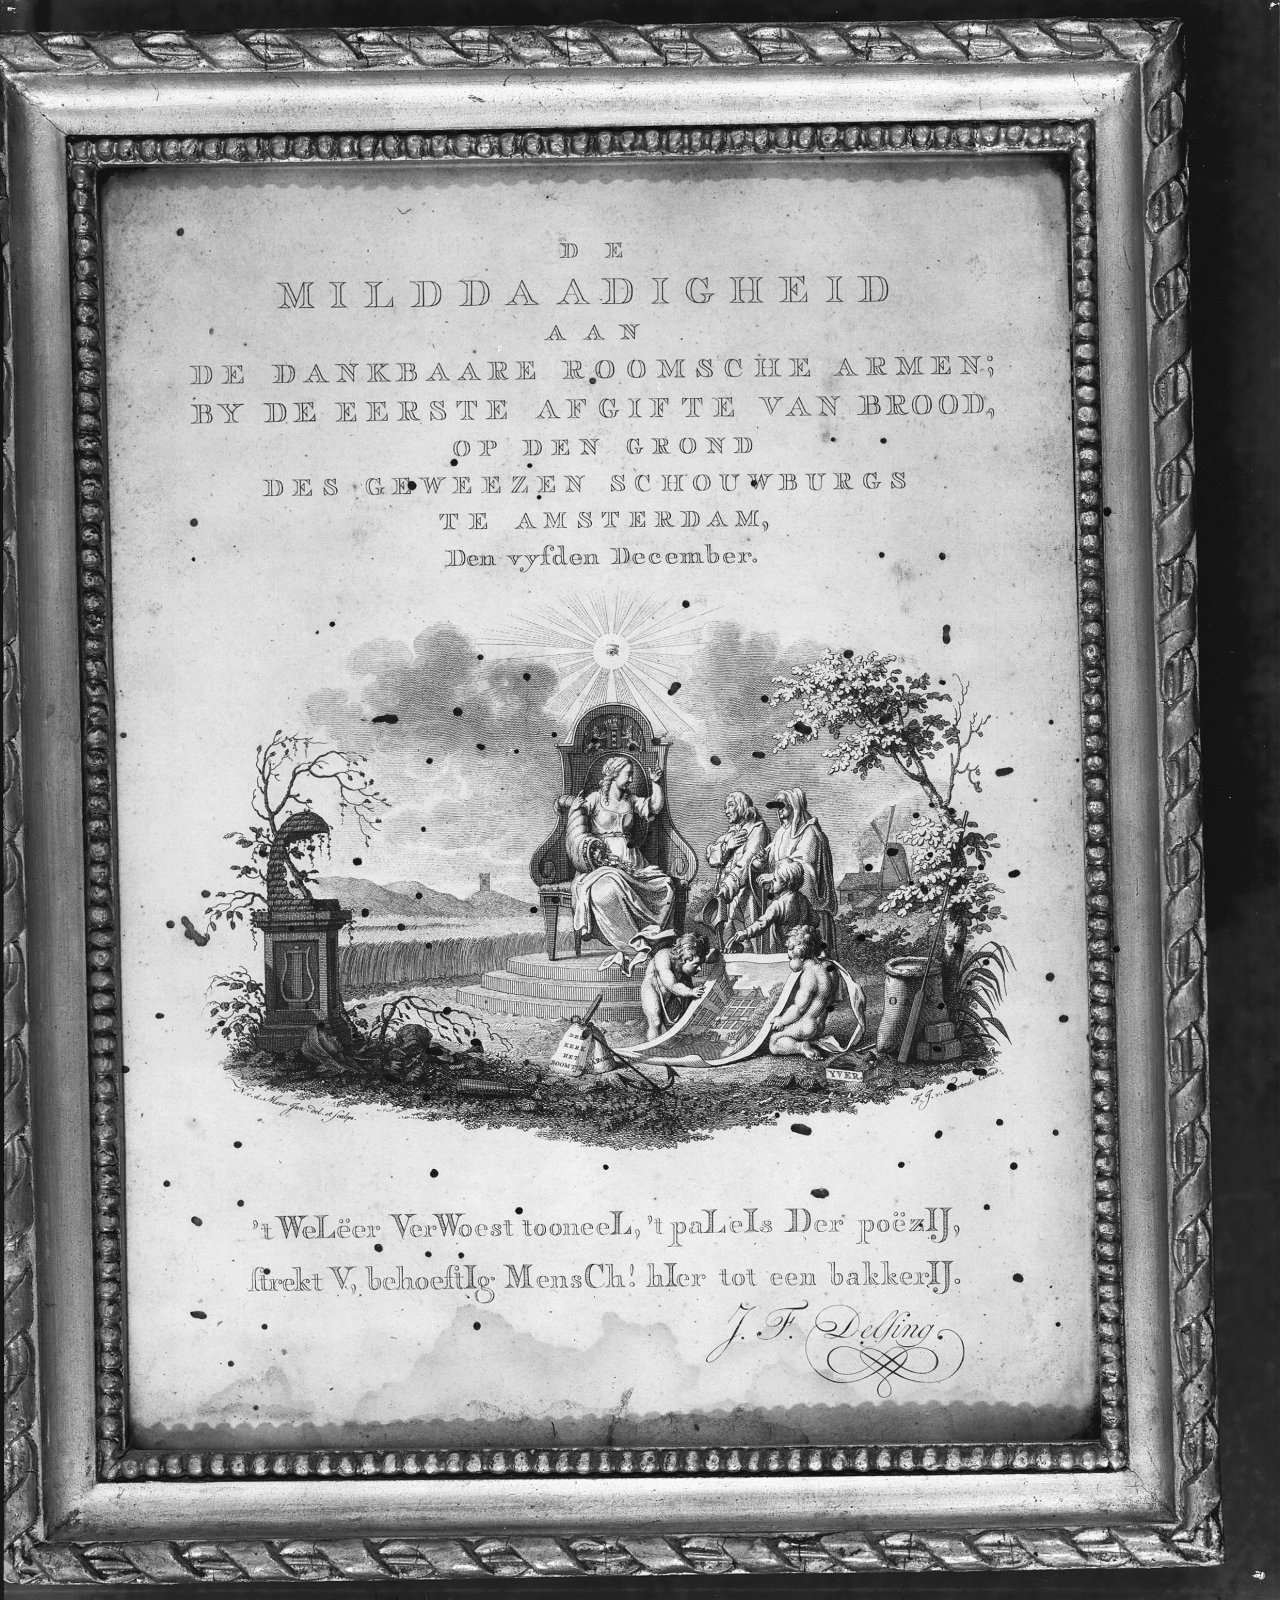 DE
MILDDAADIGHEID
AAN
DE DANKBAARE ROOMSCHE ARMEN;
BY DE EERSTE AFGIFTE VAN BROOD,
OP DEN GROND
DES GEWEEZEN SCHOUWBURGS
TE AMSTERDAM,
Den vyfden December.
YVER
't WeLëer VerWoest tooneeL, 't paLeIs Der poëzIJ,
strekt V, behoeftIg MensCh! hIer tot een bakkerIJ.
J. F. Delsing.